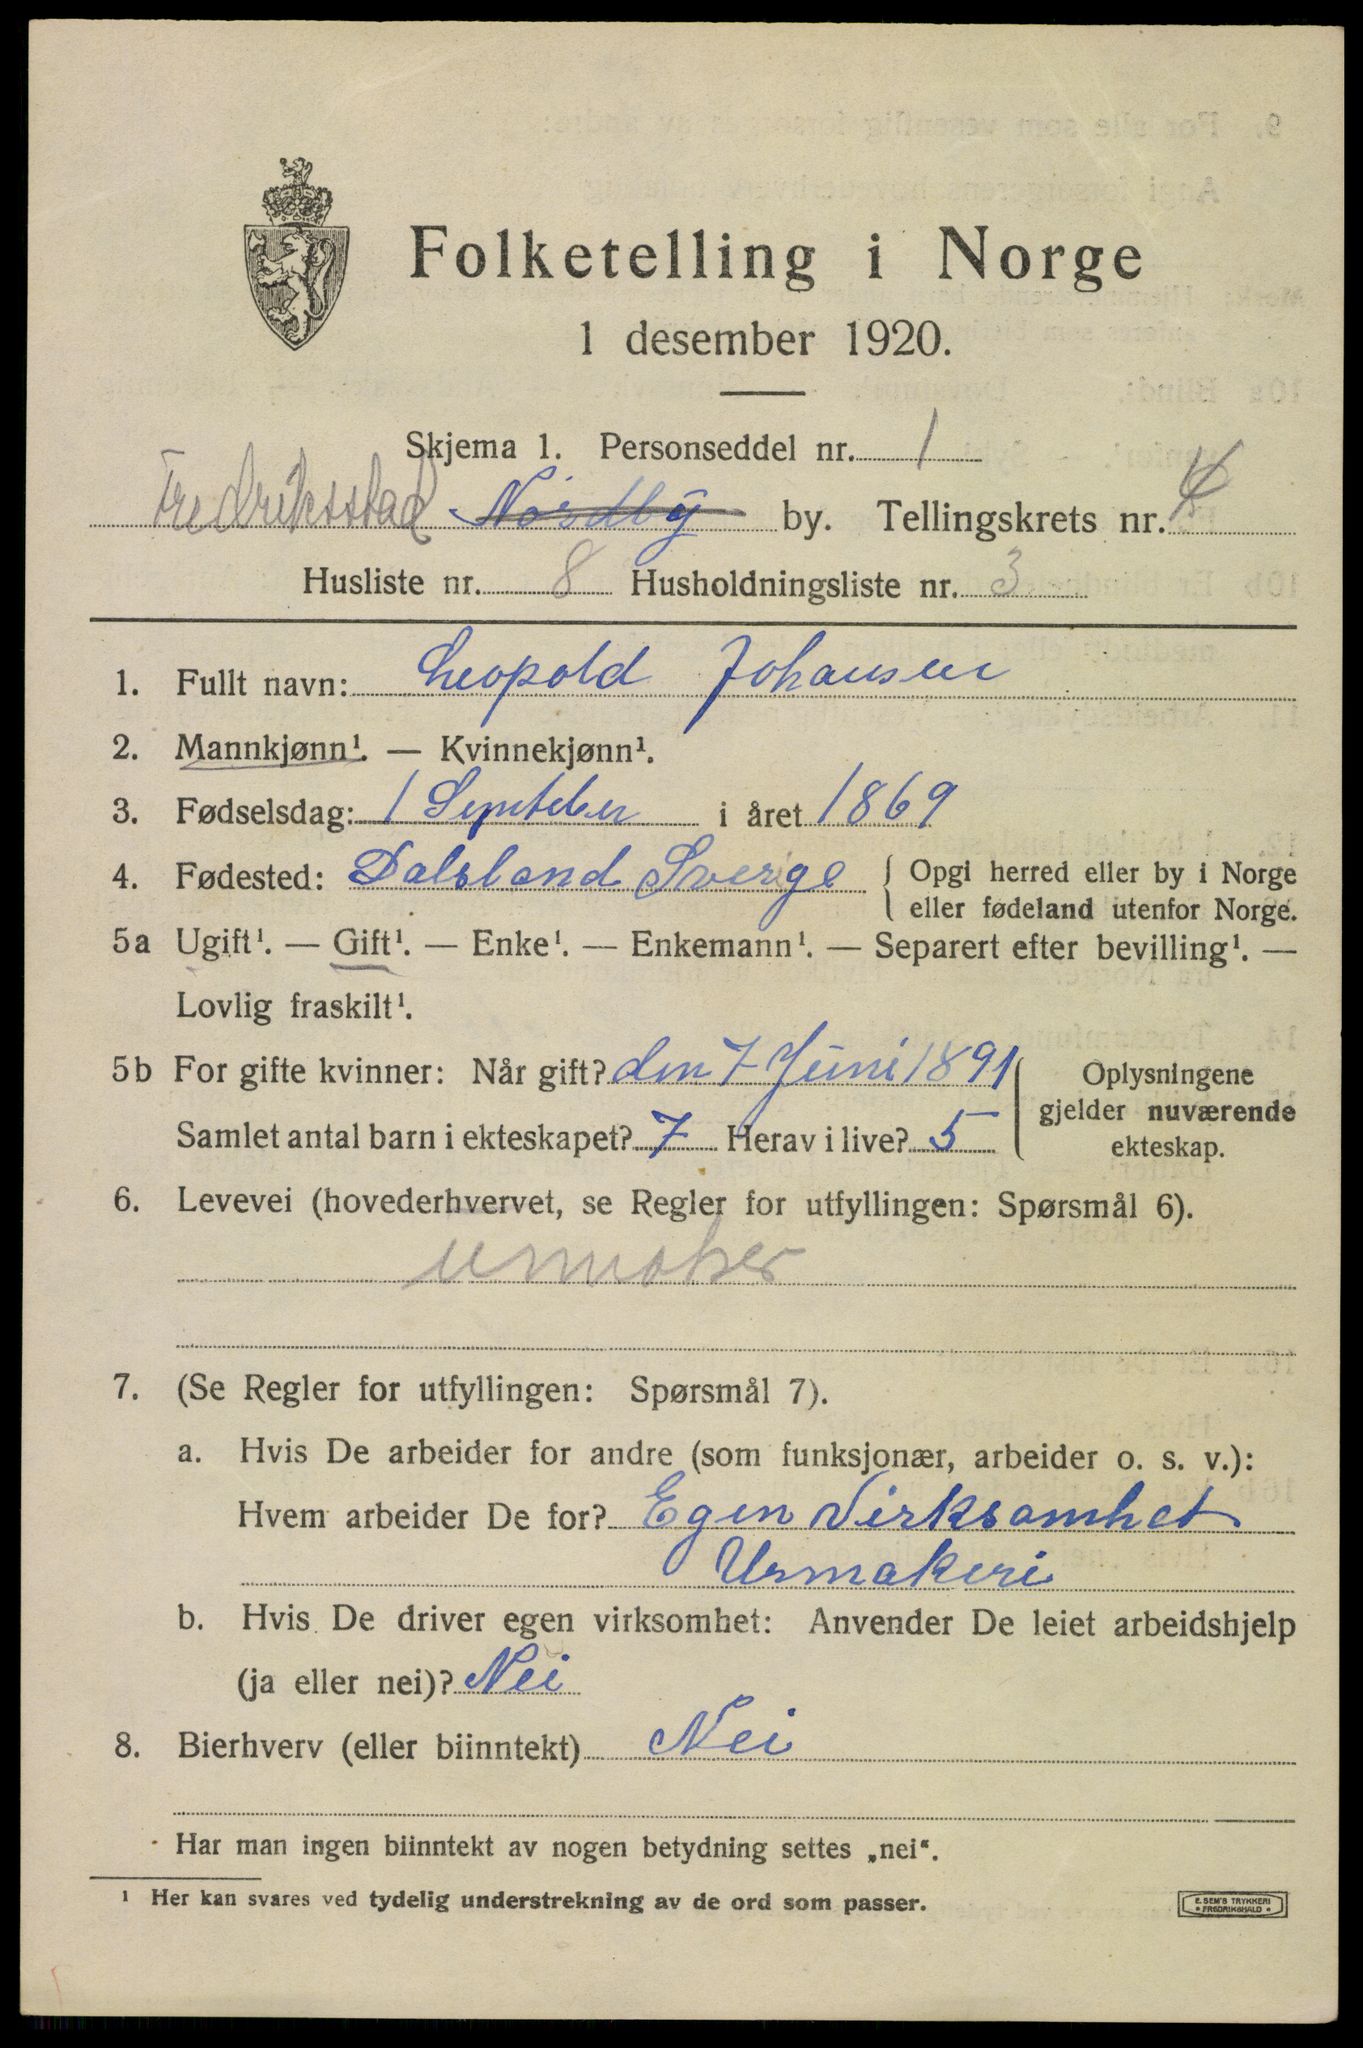 Folketelling i Norge
1 desember 1920.
Skjema 1. Personseddel nr. 1
Fredriksstad Nordby by. Tellingskrets nr. 4
Husliste nr. 8 Husholdningsliste nr. 3
1. Fullt navn: Leopold Johansen
2. Mannkjønn¹. — Kvinnekjønn¹.
3. Fødselsdag: 1 September i året 1869
4. Fødested: Dalsland Sverge { Opgi herred eller by i Norge
eller fødeland utenfor Norge.
5a Ugift¹. — Gift¹. — Enke¹. — Enkemann¹. — Separert efter bevilling¹. —
Lovlig fraskilt¹.
5b For gifte kvinner: Når gift? den 7 Juni 1891
Samlet antal barn i ekteskapet? 7 Herav i live? 5
Oplysningene
gjelder nuværende
ekteskap.
6. Levevei (hovederhvervet, se Regler for utfyllingen: Spørsmål 6).
Urmaker
7. (Se Regler for utfyllingen: Spørsmål 7).
a. Hvis De arbeider for andre (som funksjonær, arbeider o. s. v.):
Hvem arbeider De for? Egen Virksamhet
Urmakeri
b. Hvis De driver egen virksomhet: Anvender De leiet arbeidshjelp
(ja eller nei)? Nei
8. Bierhverv (eller biinntekt) Nei
Har man ingen biinntekt av nogen betydning settes „nei“.
¹ Her kan svares ved tydelig understrekning av de ord som passer.
E. SEM'S TRYKKERI
FREDRIKSHALD